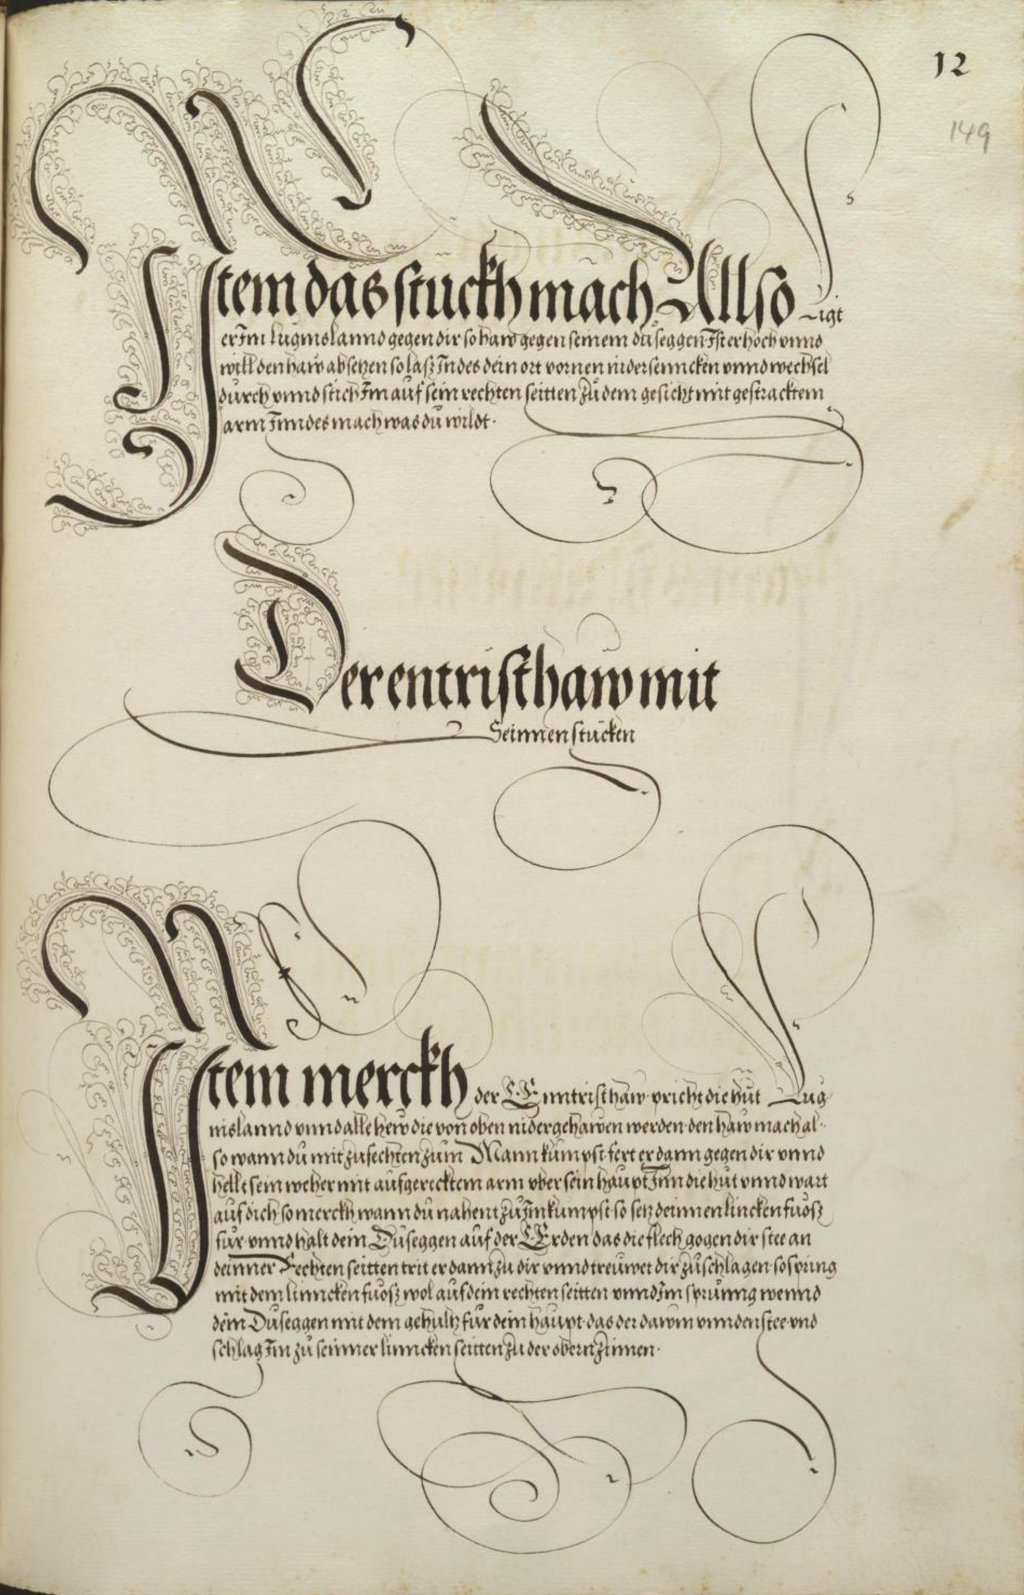 12
149
Item das stuckh mach Allso Ligt
er Im luginslannd gegen dir so haw gegen seinem duseggen Ist er hoch vnnd
will den haw absetzen so lasz Indes dein ort vornen nider sennckhen vnnd wechsel
durch vnnd stich Im auf sein rechten seitten zu dem gesicht mit gestracktem
arm Inndes mach was du wildt.
Der entrist haw mit
Seinnen stucken
Item merckh der Enntrist haw pricht die hut Lug
inslannd vnnd alle hew die von oben nider gehawen werden den haw mach al-
so wann du mit zufechten zum Mann kumpst fert er dann gegen dir vnnd
hellt sein weher mit aufgerecktem arm vber sein haupt Inn die hut vnnd wart
auf dich so merckh wann du nahent zu Im kumpst so setz deinnen lincken fuosz
fur vnnd halt dein Duseggen auf der Erden das die flech gogen dir stee an
deinner Rechten seitten trit er dann zu dir vnnd treuwet dir zu schlagen so spring
mit dem linncken fuosz wol auf dein rechten seitten vnnd Im sprunng wennd
dein Duseggen mit dem gehultz fur dein haupt das der dawm vnnden stee vnd
schlag Im zu seinner linncken seitten zu der obern zinnen.